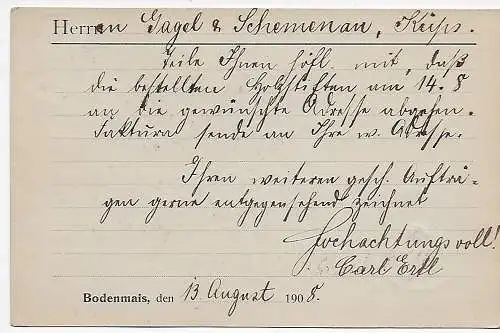 Herren Gagel & Schemenau, Küps.
Teile Ihnen höfl. mit, daß
die bestellten Holzstiften am 14. 8
an die gewünschte Adresse abgehen.
Faktura sende an Ihre w. Adresse.
Ihren weiteren gesch. Aufträ-
gen gerne entgegensehend zeichnet
Hochachtungsvoll!
Carl Ertl
Bodenmais, den 13. August 1908.